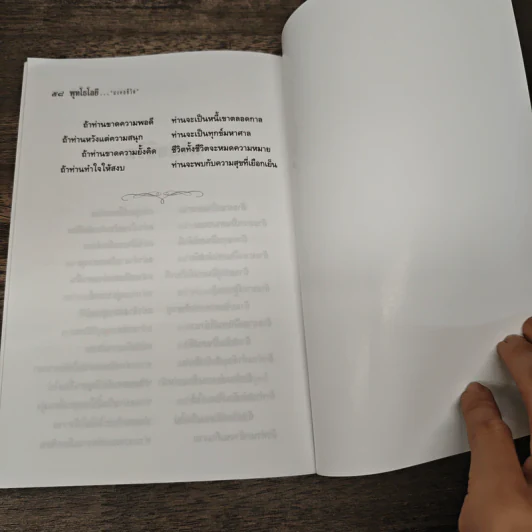 ๕๘ พุทโธโลยี...
ถ้าท่านขาดความพอดี ท่านจะเป็นหนี้เขาตลอดกาล
ถ้าท่านหวังแต่ความสนุก ท่านจะเป็นทุกข์มหาศาล
ถ้าท่านขาดความยั้งคิด ชีวิตทั้งชีวิตจะหมดความหมาย
ถ้าท่านทำใจให้สงบ ท่านจะพบกับความสุขที่เยือกเย็น